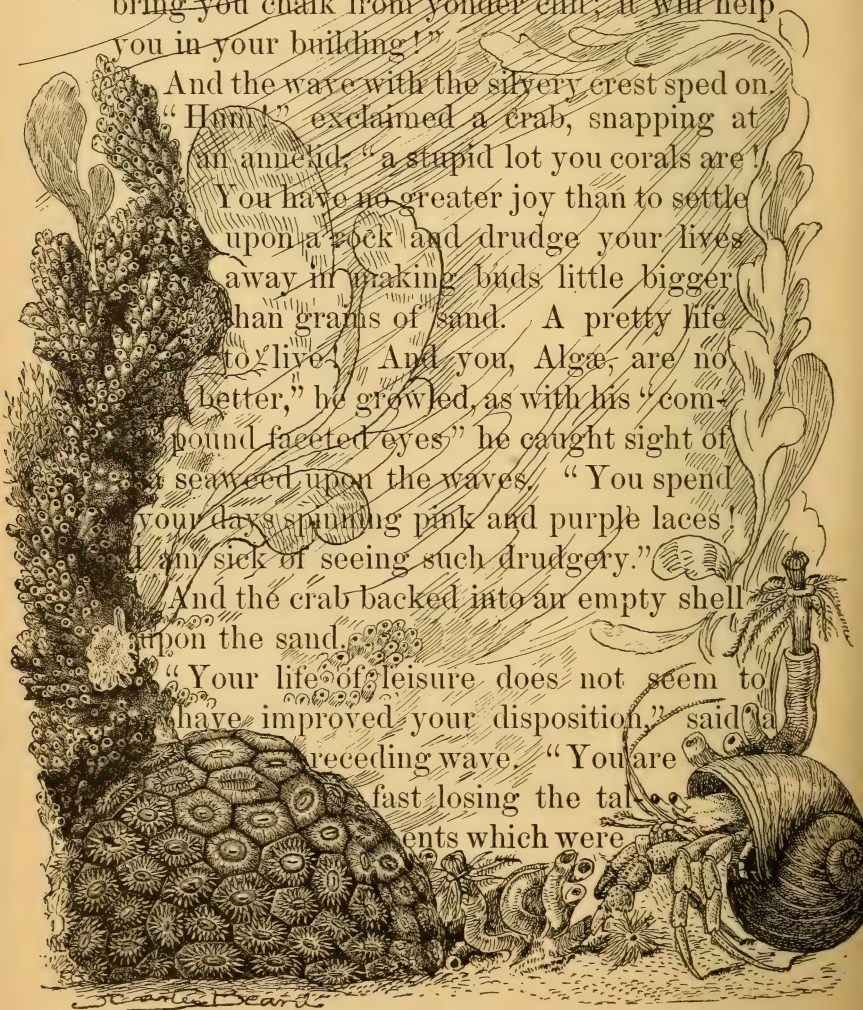 bring you chalk from yonder cliff; it will help
you in your building!”
And the wave with the silvery crest sped on.
“Hum!” exclaimed a crab, snapping at
an annelid; “a stupid lot you corals are!
You have no greater joy than to settle
upon a rock and drudge your lives
away in making buds little bigger
than grains of sand. A pretty life
to live! And you, Algæ, are no
better,” he growled, as with his “com-
pound faceted eyes” he caught sight of
a seaweed upon the waves. “You spend
your days spinning pink and purple laces!
I am sick of seeing such drudgery.”
And the crab backed into an empty shell
upon the sand.
“Your life of leisure does not seem to
have improved your disposition,” said a
receding wave. “You are
fast losing the tal-
ents which were
J Carter Beard